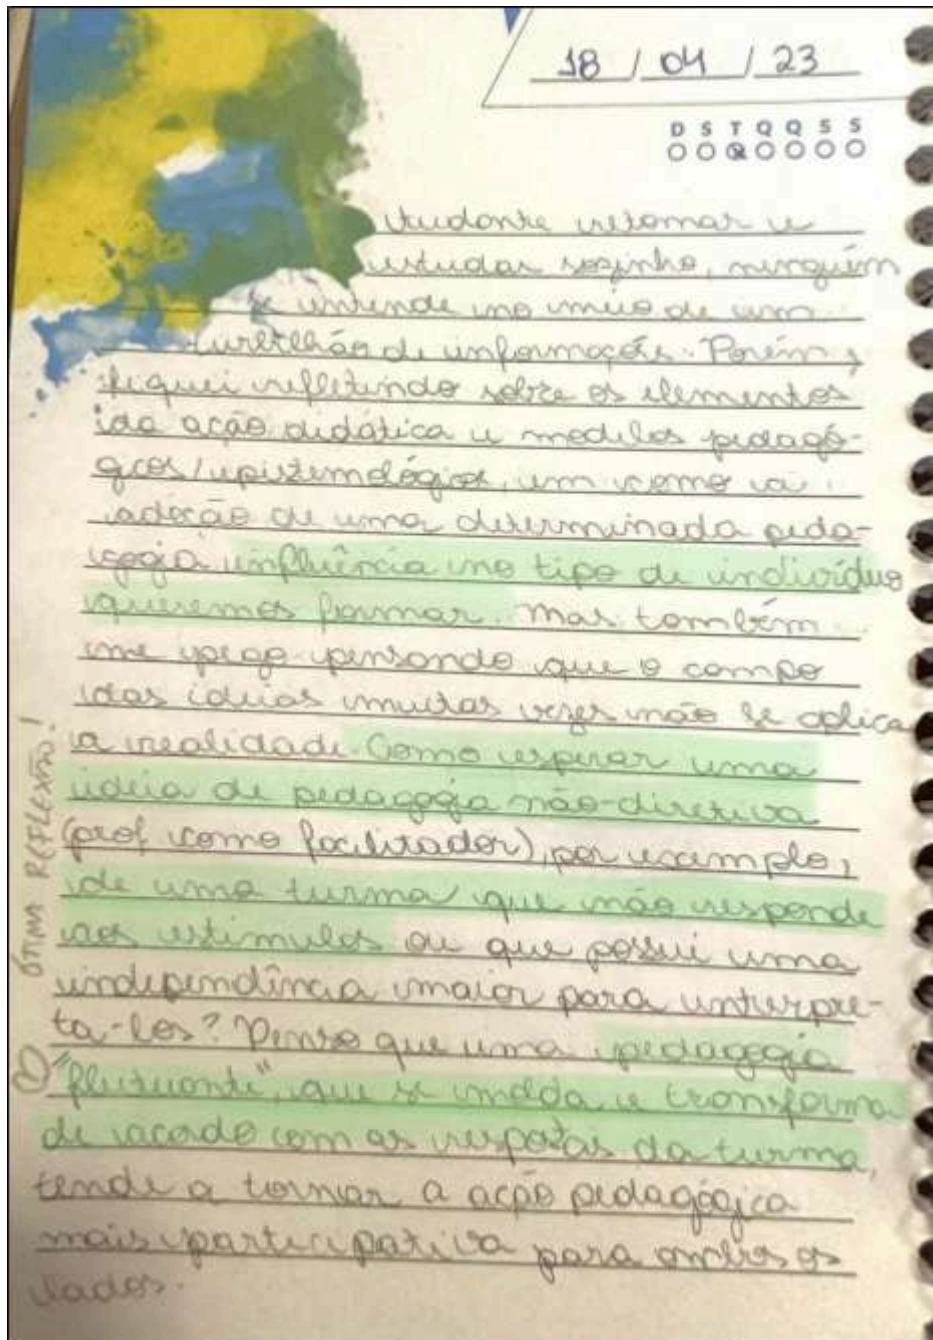 18 / 04 / 23
D S T Q Q S S
studante retomar e
estudar sozinho, ninguém
se entende no meio de um
turbilhão de informações. Porém,
fiquei refletindo sobre os elementos
da ação didática e modelos pedagó-
gicos/epistemológicos, em como a
adoção de uma determinada peda-
gogia influência no tipo de indivíduo
queremos formar. Mas também
me pego pensando que o campo
das ideias muitas vezes não se aplica
a realidade. Como esperar uma
ideia de pedagogia não-diretiva
(prof como facilitador), por exemplo,
de uma turma que não responde
aos estimulos ou que possui uma
independência maior para interpre-
ta-los? Penso que uma pedagogia
"flutuante", que se molda e transforma
de acordo com as respostas da turma,
tende a tornar a ação pedagógica
mais participativa para ambos os
lados.
ÓTIMA REFLEXÃO!